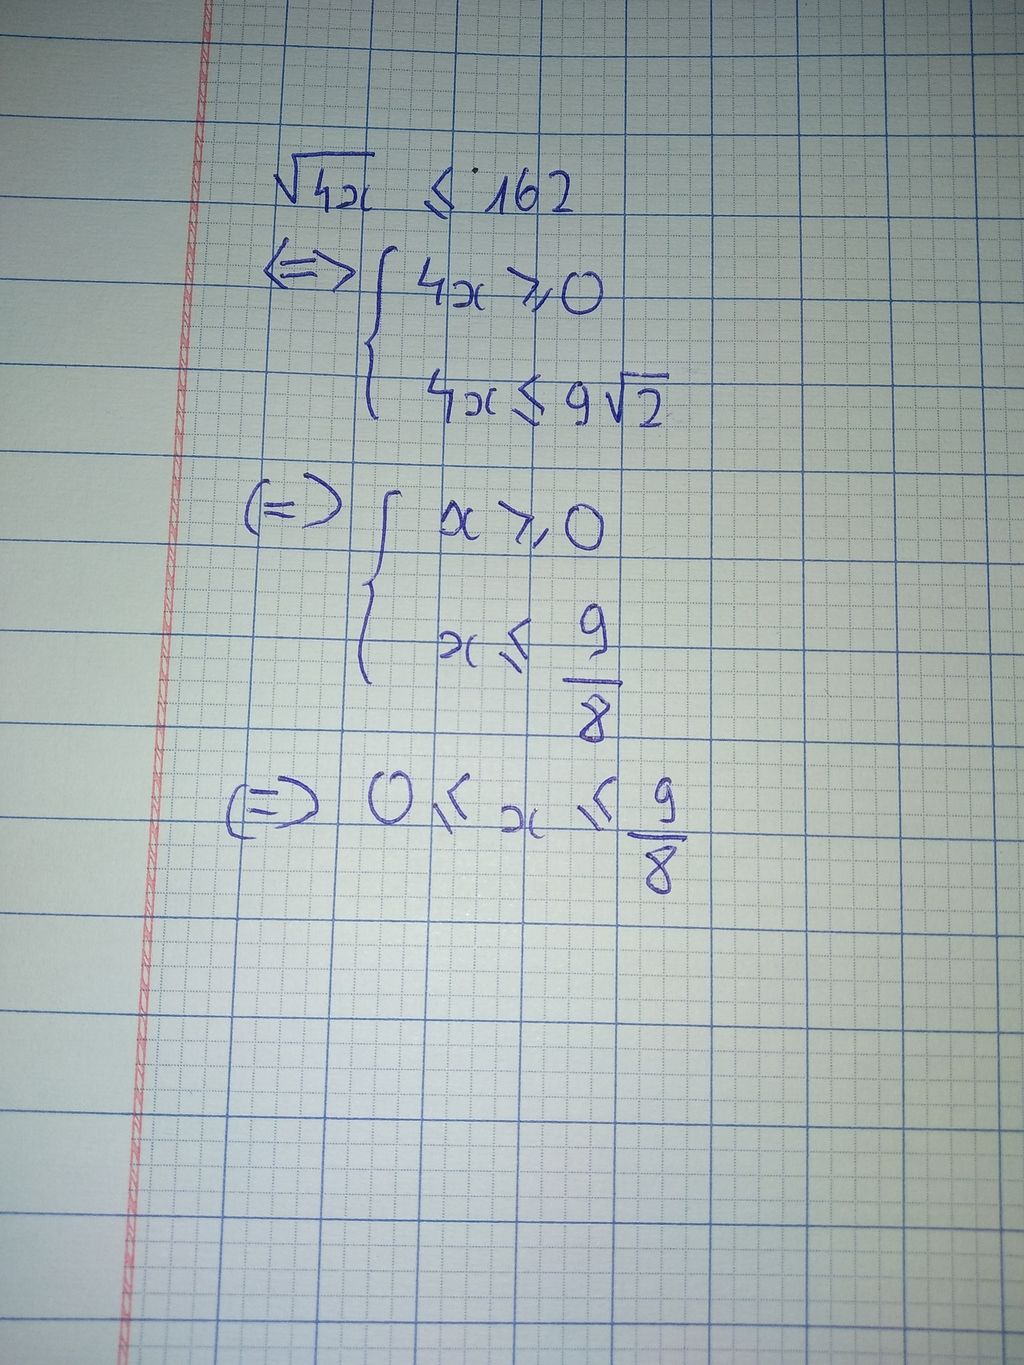 √4x ≤ 162
<=> { 4x ≥ 0
4x ≤ 9√2
(=) { x ≥ 0
x ≤ 9/8
(=) 0 ≤ x ≤ 9/8